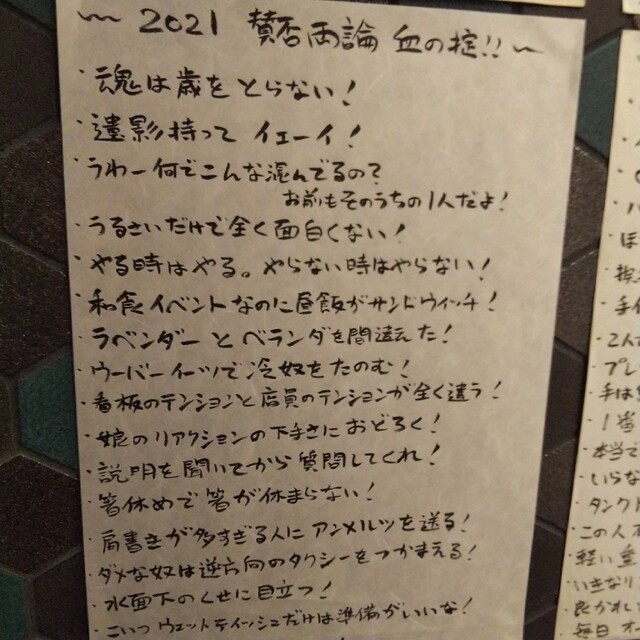 ～ 2021 賛否両論 血の掟!! ～
・魂は歳をとらない！
・遺影持って イェーイ！
・うわー何でこんな混んでるの？
お前もそのうちの1人だよ！
・うるさいだけで全く面白くない！
・やる時はやる。やらない時はやらない！
・和食イベントなのに昼飯がサンドウィッチ！
・ラベンダーとベランダを間違えた！
・ウーバーイーツで冷奴をたのむ！
・看板のテンションと店員のテンションが全く違う！
・娘のリアクションの下手さにおどろく！
・説明を聞いてから質問してくれ！
・箸休めで箸が休まらない！
・肩書きが多すぎる人にアンメルツを送る！
・ダメな奴は逆方向のタクシーをつかまえる！
・水面下のくせに目立つ！
・こいつ ウェットティッシュだけは準備がいいな！
・ほ
・手
・2人
・プレ
・手は
・1番
・本当で
・いらな
・タンク
・この人
・軽い
・いきなり
・毎日